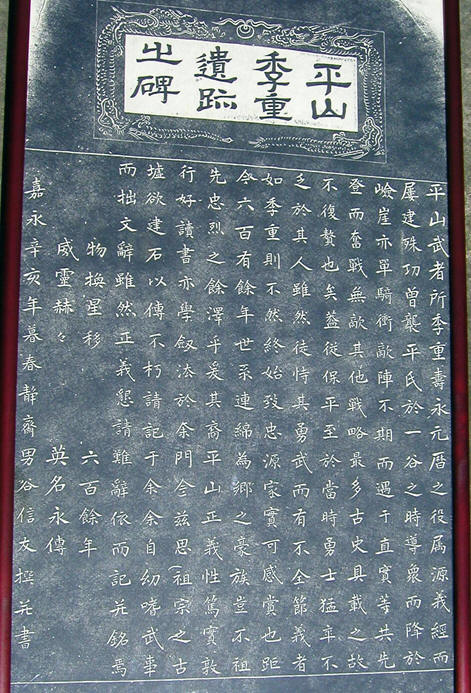 平山
季重
遺跡
之碑
平山武者所季重壽永元暦之役属源義經而
屡建殊功曽襲平氏於一谷之時導衆而降於
嶮崖亦單騎衝敵陣不期而遇于直實等共先
登而奮戰無敵其他戰略最多古史具載之故
不復贅也矣葢從保平至於當時勇士猛卒不
乏於其人雖然徒恃其勇武而有不全節義者
如季重則不然終始致忠源家實可感賞也距
今六百有餘年世系連綿為郷之豪族豈不祖
先忠烈之餘澤乎爰其裔平山正義性篤實敦
行好讀書亦學劔法於余門今茲思祖宗之古
墟欲建石以傳不朽請記于余余自幼嗜武事
而拙文辭雖然正義懇請難辭依而記并銘焉
物換星移 六百餘年
威靈赫々 英名永傳
嘉永辛亥年暮春静齋男谷信友撰并書